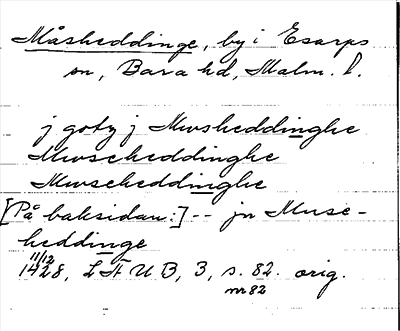 Måsheddinge, by i Esarps
sn, Bara hd, Malm. l.
j gotz j Mwsheddinghe
Mwscheddinghe
Mwscheddinghe
[På baksidan:] -- jn Muse-
heddinge
11/12
1428, LÆUB, 3, s. 82. orig.
nr 82